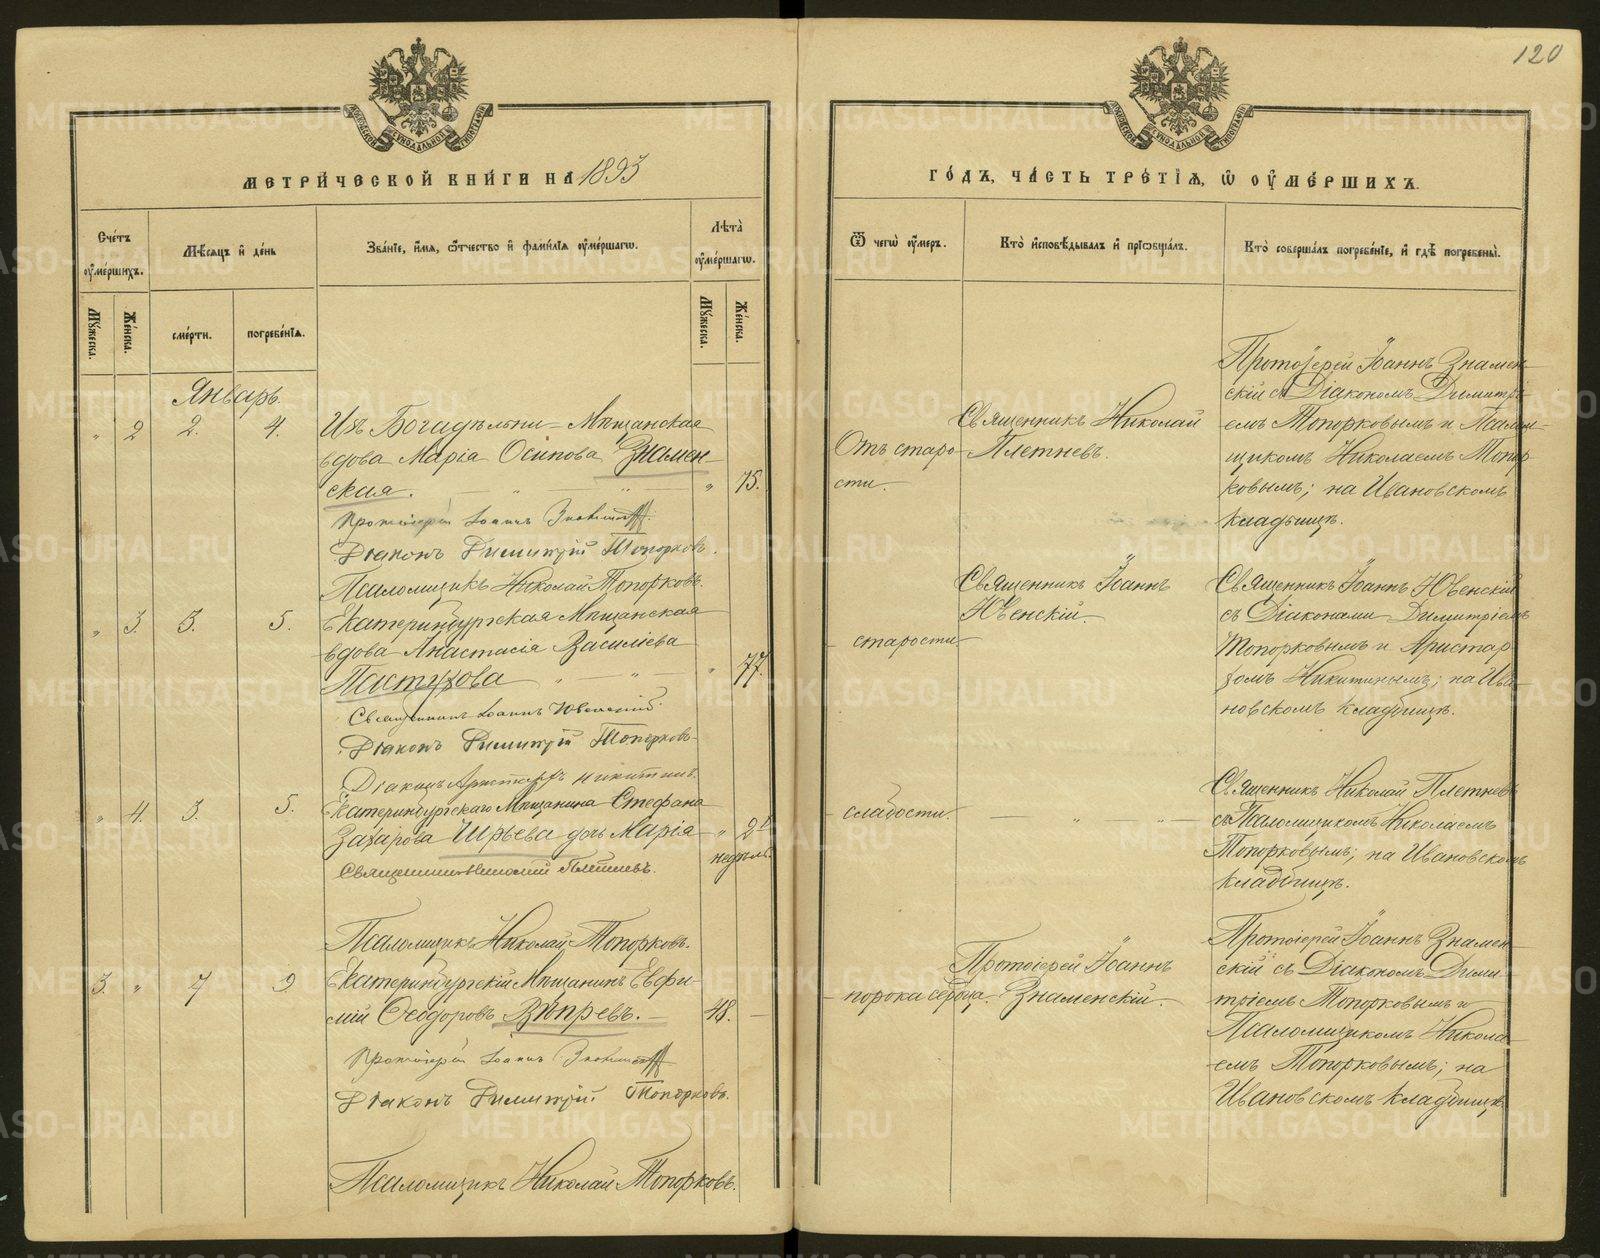 120
МЕТРИ́ЧЕСКОЙ КНИ́ГИ НА 1893
ГО́ДЪ, ЧА́СТЬ ТРЕ́ТІѦ, Ѡ҆ ОУ҆МЕ́РШИХЪ.
Сче́тъ оу҆ме́ршихъ.
Мѣ́сѧцъ и҆ де́нь
Зва́нїе, и҆́мѧ, ѻ҆́тчество и҆ фами́лїѧ оу҆ме́ршагѡ.
Лѣ́та оу҆ме́ршагѡ.
Ѿ чегѡ̀ оу҆́меръ.
Кто̀ и҆сповѣ́дывалъ и҆ прїѡбща́лъ.
Кто̀ соверша́лъ погребе́нїе, и҆ гдѣ̀ погребены̀.
Мꙋ́жеска.
Же́нска.
сме́рти.
погребе́нїѧ.
Мꙋ́жеска.
Же́нска.
Январь.
" 2 2. 4.
Изъ Богадѣльни Мѣщанская
вдова Марія Осипова Знамен
ская. " 75.
Протоіерей Іоаннъ Знаменскій
Діаконъ Димитрій Топорковъ.
Псаломщикъ Николай Топорковъ.
Отъ старо-
сти.
Священникъ Николай
Плетневъ.
Протоіерей Іоаннъ Знамен
скій съ Діакономъ Димитрі-
емъ Топорковымъ и Псалом-
щикомъ Николаемъ Топор
ковымъ; на Ивановскомъ
кладбищѣ.
" 3. 3. 5.
Екатеринбургская Мѣщанская
вдова Анастасія Василіева
Пастухова " 77.
Священникъ Іоаннъ Ювенскій.
Діаконъ Димитрій Топорковъ
Діаконъ Аристархъ Никитинъ.
старости.
Священникъ Іоаннъ
Ювенскій.
Священникъ Іоаннъ Ювенскій
съ Діаконами Димитріемъ
Топорковымъ и Аристар
хомъ Никитинымъ; на Ива-
новскомъ кладбищѣ.
" 4. 3. 5.
Екатеринбургскаго Мѣщанина Стефана
Захарова Ширяева дочь Марія " 2
недѣль.
Священникъ Николай Плетневъ.
Псаломщикъ Николай Топорковъ.
слабости.
Священникъ Николай Плетневъ
съ Псаломщикомъ Николаемъ
Топорковымъ; на Ивановскомъ
кладбищѣ.
3. " 7 9
Екатеринбургскій Мѣщанинъ Евфи-
мій Ѳеодоровъ Зыревъ. 48.
Протоіерей Іоаннъ Знаменскій
Діаконъ Димитрій Топорковъ.
Псаломщикъ Николай Топорковъ.
порока сердца.
Протоіерей Іоаннъ
Знаменскій.
Протоіерей Іоаннъ Знамен-
скій съ Діакономъ Дими-
тріемъ Топорковымъ и
Псаломщикомъ Никола-
емъ Топорковымъ; на
Ивановскомъ кладбищѣ.
METRIKI.GASO-URAL.RU